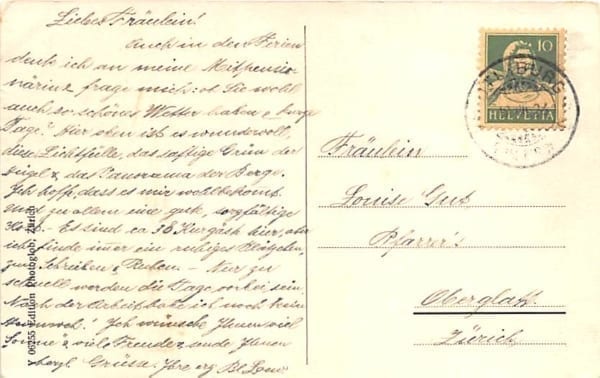 Liebes Fräulein!
Auch in den Ferien
denk ich an meine Mitpensio-
närin & frage mich: ob Sie wohl
auch so schönes Wetter haben &
Tage? Hier oben ist es wundervoll,
diese Lichtfülle, das saftige Grün der
Hügel & das Panorama der Berge.
Ich hoff, dass es mir wohl bekomt
und zu allem eine gute, sorgfältige
Kost. – Es sind ca 38 Kurgäste hier, aber
ich finde immer ein ruhiges Plätzchen,
zum Schreiben & Ruhen. – Nur zu
schnell werden die Tage vorbei sein.
Nach der Arbeit habe ich noch kein
Ich wünsche Ihnen viel
Sonne & viel Freude & sende Ihnen
herzl. Grüsse. Ihre erg.
10
HELVETIA
Fräulein
Louise Gut
Pfarrer's
Oberglatt
Zürich
Y 06255 Edition Photoglob, Zürich